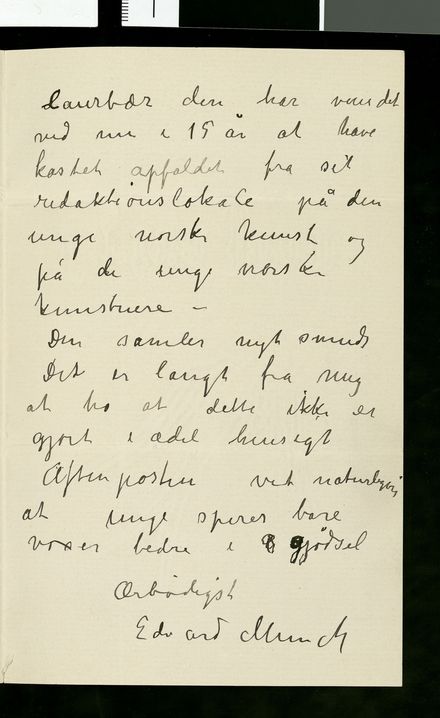 Laurbær den har vundet
ved nu i 15 år at have
kastet affaldet fra sit
redaktionslokale på den
unge norske kunst og
på de unge norske
kunstnere –
Den samler nyt smuds
Det er langt fra mig
at tro at dette ikke er
gjort i ædel hensigt
Aftenposten ved naturligvis
at unge spirer bare
voxer bedre i gjødsel
Ærbødigst
Edvard Munch